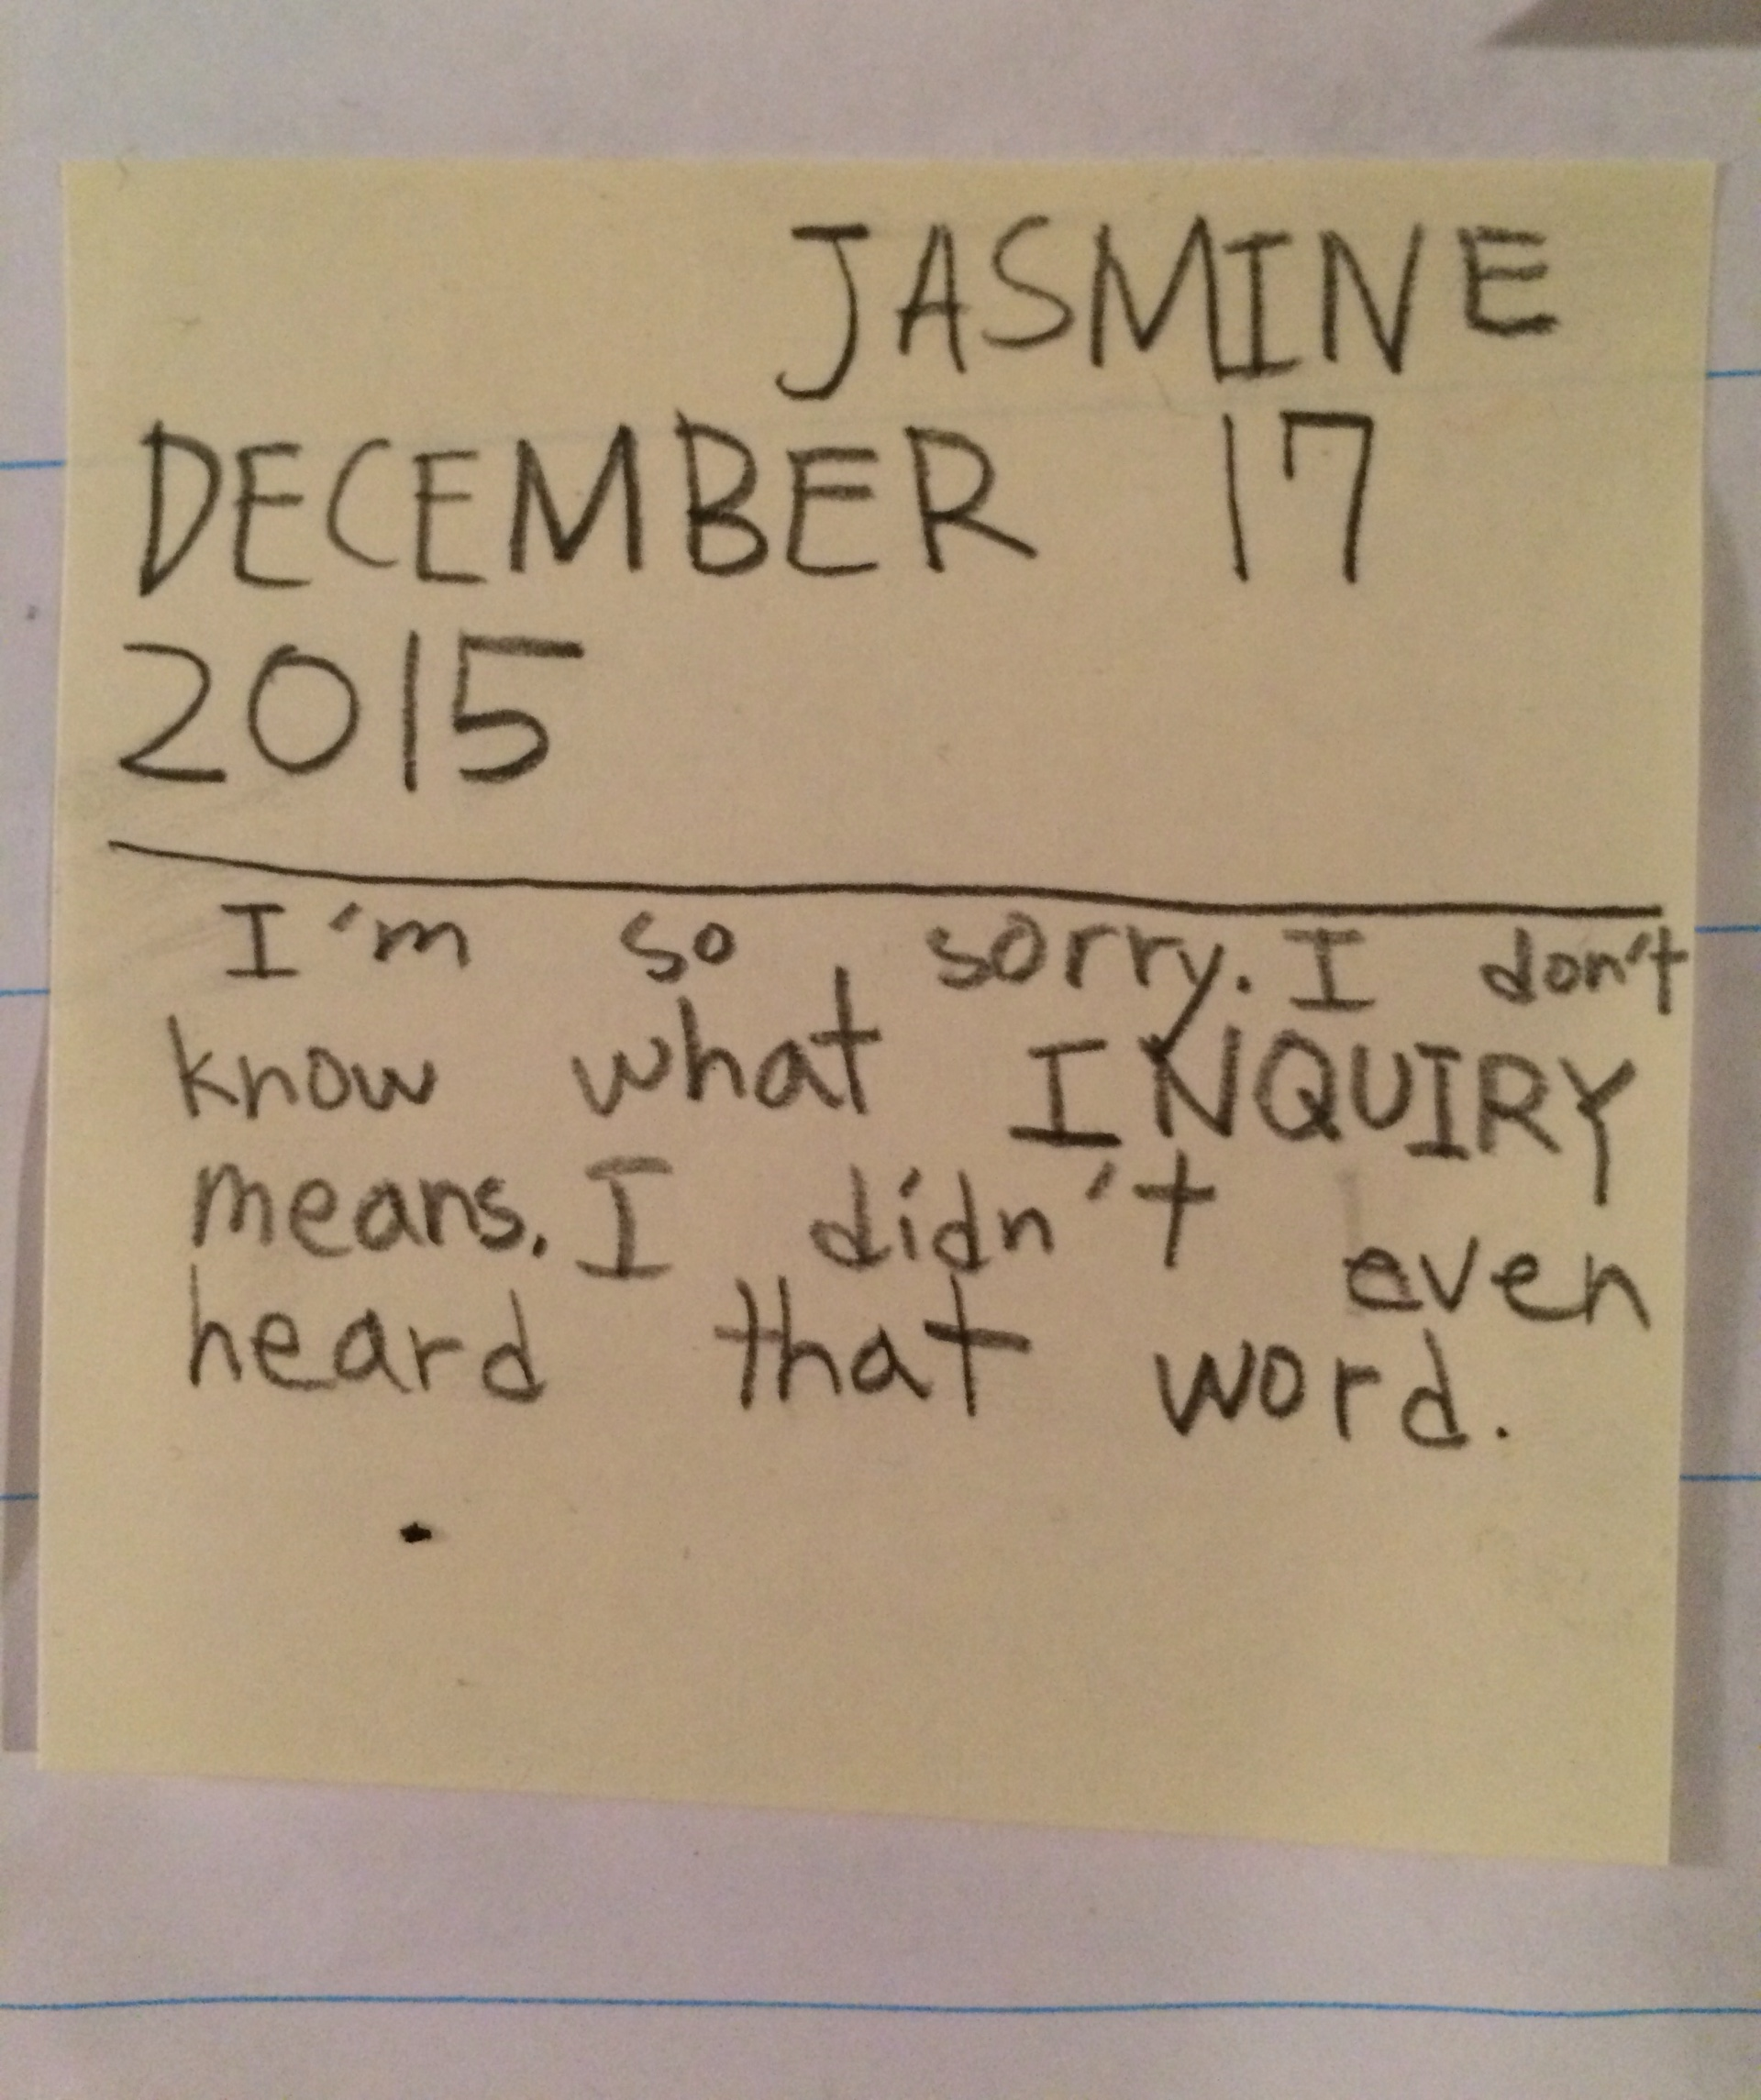 JASMINE
DECEMBER 17
2015
I'm so sorry. I don't
know what INQUIRY
means. I didn't even
heard that word.